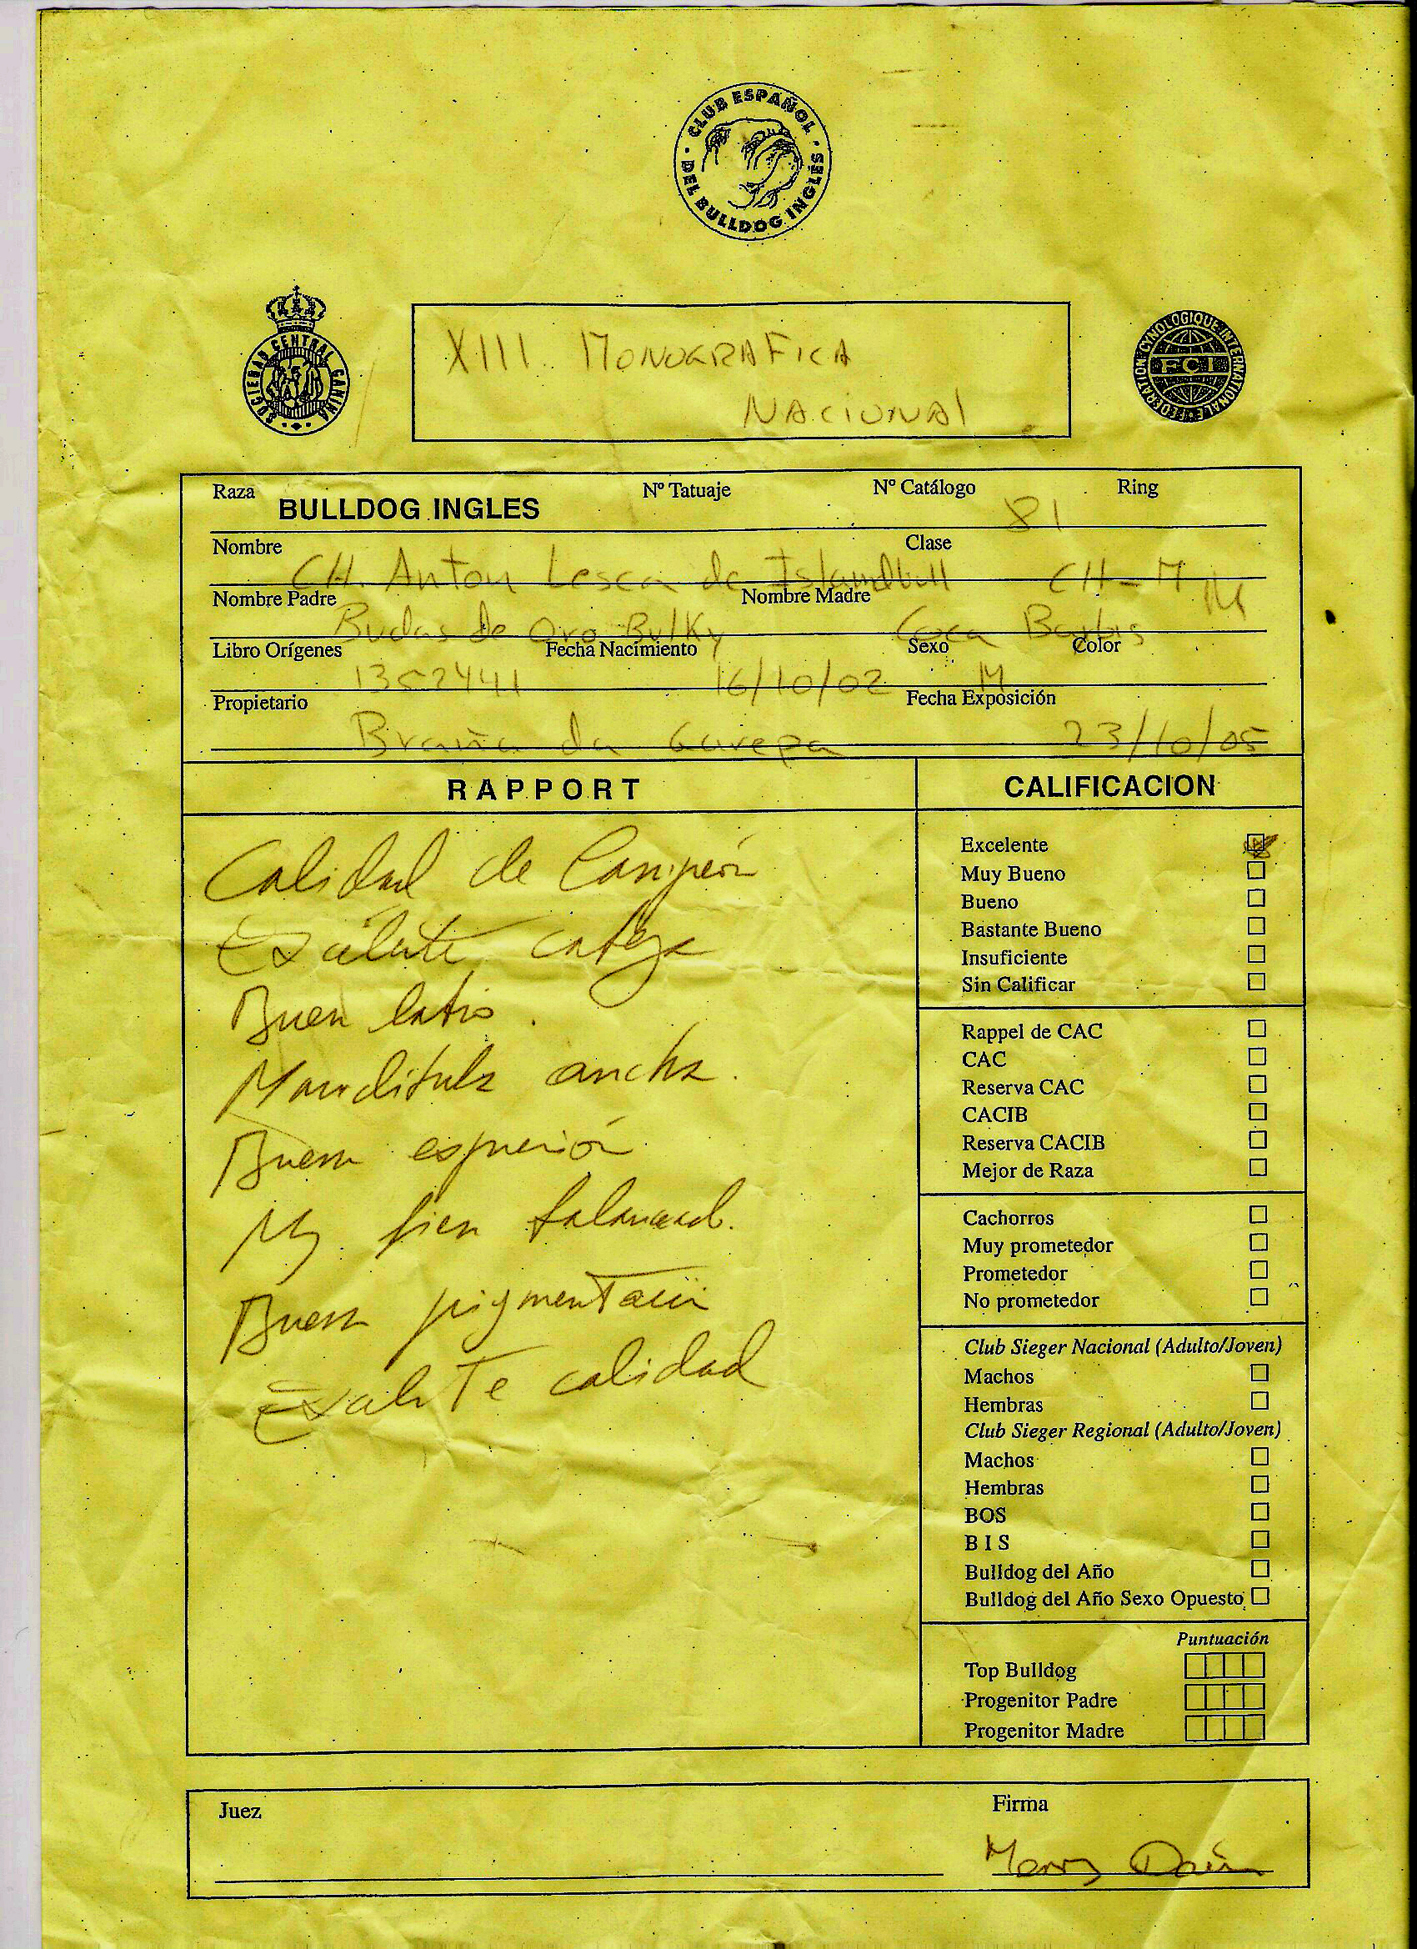 CLUB ESPAÑOL DEL BULLDOG INGLÉS
SOCIEDAD CENTRAL CANINA
XIII MONOGRAFICA
NACIONAL
FEDERATION CYNOLOGIQUE INTERNATIONALE
FCI
Raza BULLDOG INGLES Nº Tatuaje Nº Catálogo 81 Ring
Nombre CH. Anton Lesca de Islandbull Clase CH-M M
Nombre Padre Budas de Oro Bulky Nombre Madre Coca Barbis
Libro Orígenes 1352441 Fecha Nacimiento 16/10/02 Sexo M Color
Propietario Braña da Gurepa Fecha Exposición 23/10/05
RAPPORT
Calidad de Campeón
Exelente cabeza
Buen labio.
Mandibula ancha.
Buena expresión
My bien balancead.
Buena pigmentación
Exelente calidad
CALIFICACION
Excelente
Muy Bueno
Bueno
Bastante Bueno
Insuficiente
Sin Calificar
Rappel de CAC
CAC
Reserva CAC
CACIB
Reserva CACIB
Mejor de Raza
Cachorros
Muy prometedor
Prometedor
No prometedor
Club Sieger Nacional (Adulto/Joven)
Machos
Hembras
Club Sieger Regional (Adulto/Joven)
Machos
Hembras
BOS
B I S
Bulldog del Año
Bulldog del Año Sexo Opuesto
Puntuación
Top Bulldog
Progenitor Padre
Progenitor Madre
Juez
Firma